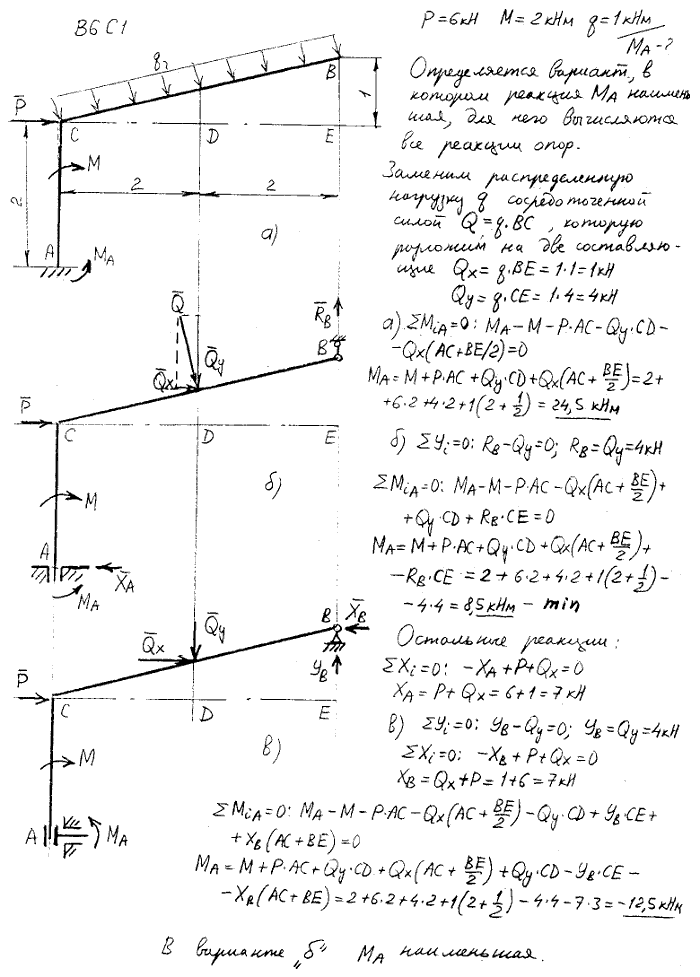 В6 С1
P=6кН M=2кНм q=1кНм
M_A-?
Определяется вариант, в
котором реакция M_A наимень
шая, для него вычисляются
все реакции опор.
Заменим распределенную
нагрузку q сосредоточенной
силой Q=q·BC, которую
разложим на две составляю-
щие Qx = q·BE = 1·1 = 1кН
Qy = q·CE = 1·4 = 4кН
а) ΣM_iA=0: M_A-M-P·AC-Qy·CD-
-Qx(AC+BE/2)=0
M_A = M+P·AC+Qy·CD+Qx(AC+BE/2)=2+
+6·2+4·2+1(2+1/2) = 24,5 кНм
б) ΣYi=0: R_B-Qy=0; R_B=Qy=4кН
ΣM_iA=0: M_A-M-P·AC-Qx(AC+BE/2)+
+Qy·CD+R_B·CE=0
M_A=M+P·AC+Qy·CD+Qx(AC+BE/2)+
-R_B·CE = 2+6·2+4·2+1(2+1/2)-
-4·4=8,5кНм - min
Остальные реакции:
ΣXi=0: -X_A+P+Qx=0
X_A=P+Qx=6+1=7кН
в) ΣYi=0: Y_B-Qy=0; Y_B=Qy=4кН
ΣXi=0: -X_B+P+Qx=0
X_B=Qx+P=1+6=7кН
ΣM_iA=0: M_A-M-P·AC-Qx(AC+BE/2)-Qy·CD+Y_B·CE+
+X_B(AC+BE)=0
M_A=M+P·AC+Qy·CD+Qx(AC+BE/2)+Qy·CD-Y_B·CE-
-X_B(AC+BE)=2+6·2+4·2+1(2+1/2)-4·4-7·3=-12,5кНм
В варианте „б" M_A наименьшая.
B
1
P
C
D
E
M
2
2
2
A
M_A
а)
Q
R_B
Qy
B
Qx
P
C
D
E
M
б)
A
X_A
M_A
B
X_B
Qx
Qy
Y_B
P
C
D
E
M
в)
A
M_A